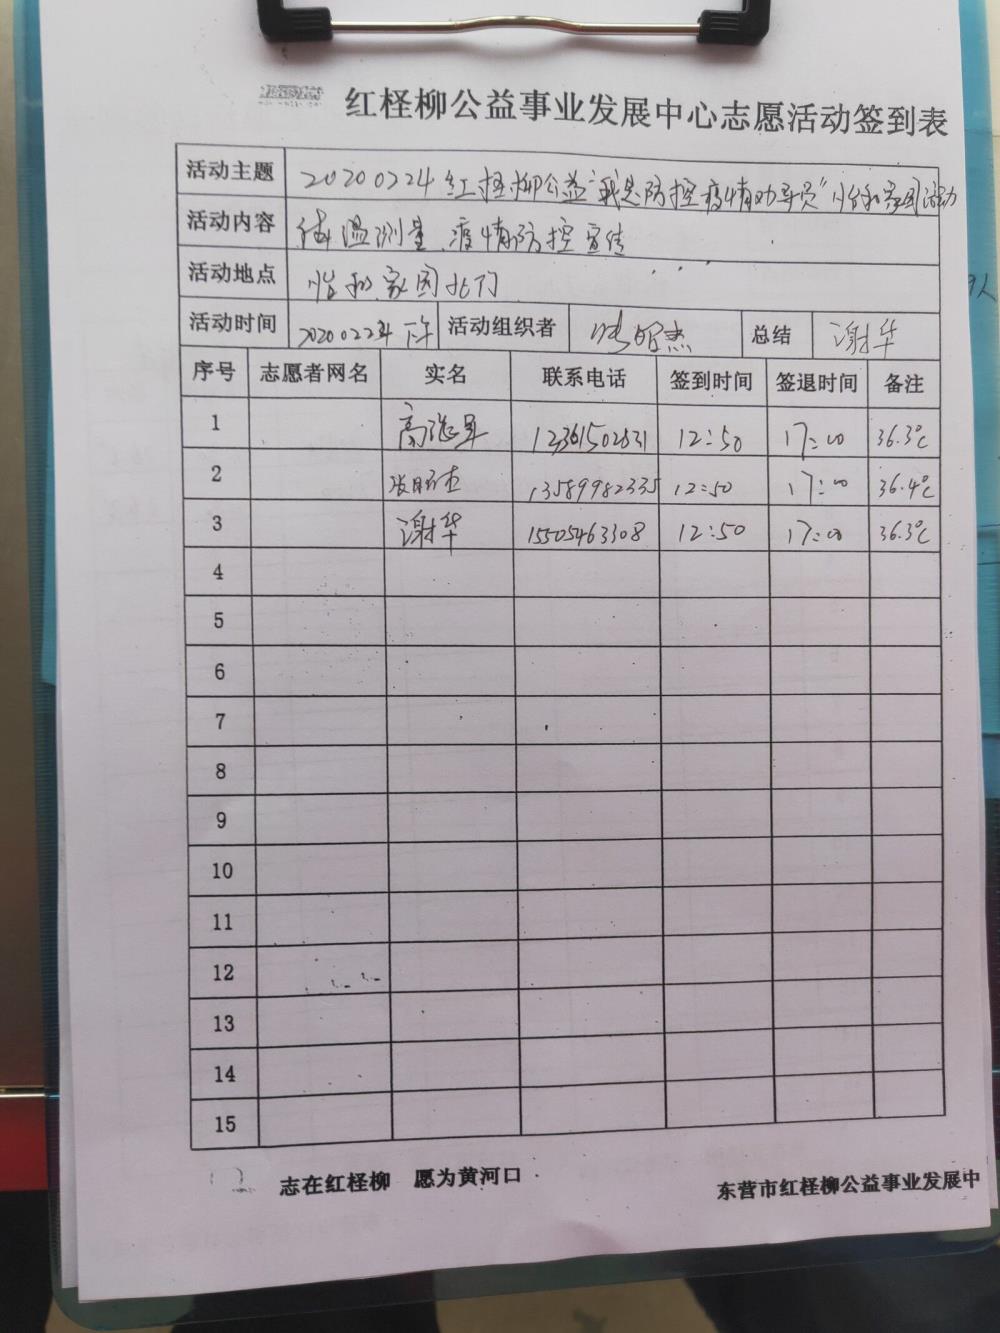 红柽柳公益事业发展中心志愿活动签到表
活动主题 20200224红柽柳公益“我是防控疫情劝导员”怡和家园活动
活动内容 体温测量 疫情防控宣传
活动地点 怡和家园北门
活动时间 20200224 下午 活动组织者 总结 谢华
序号 志愿者网名 实名 联系电话 签到时间 签退时间 备注
1 12:50 17:00 36.3℃
2 13589982335 12:50 17:00 36.4℃
3 谢华 15505463308 12:50 17:00 36.3℃
4
5
6
7
8
9
10
11
12
13
14
15
志在红柽柳 愿为黄河口
东营市红柽柳公益事业发展中